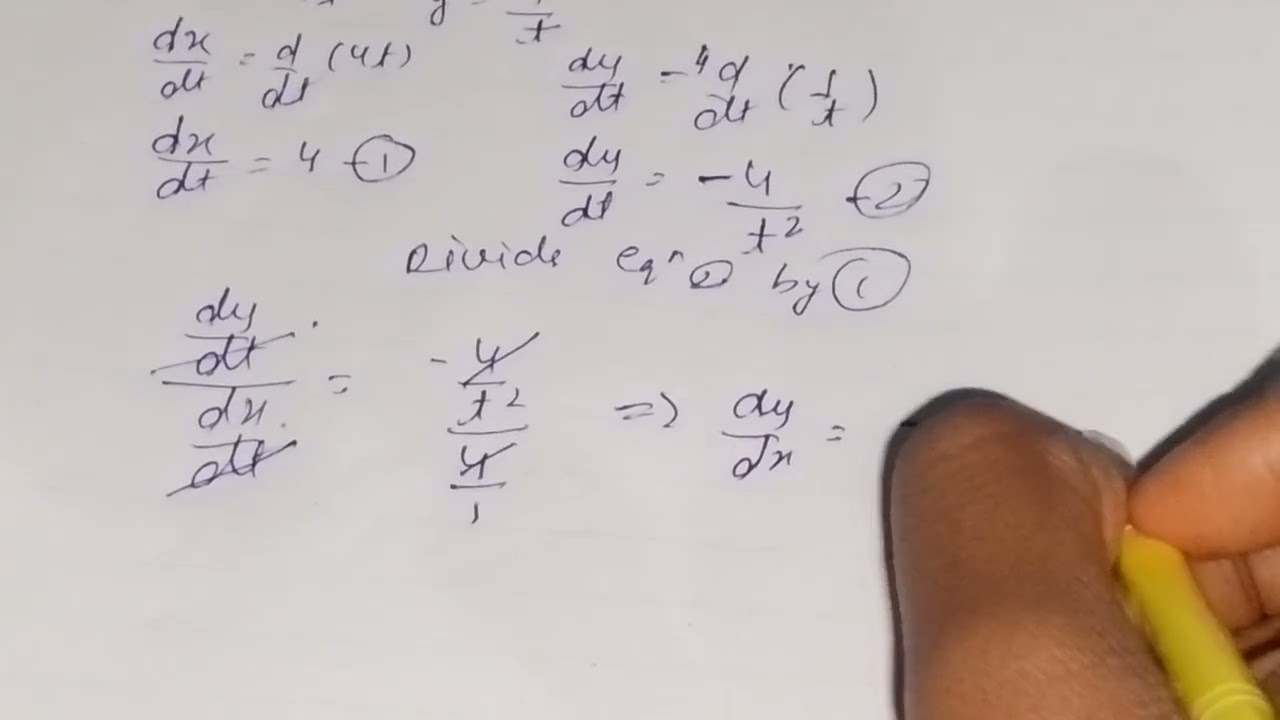 y = /t
dx/dt = d/dt (4t)
dy/dt = -4 d/dt (1/t)
dx/dt = 4 -①
dy/dt = -4/t² -②
Divide eqⁿ ② by ①
(dy/dt)/(dx/dt) = (-4/t²)/(4/1) => dy/dx =